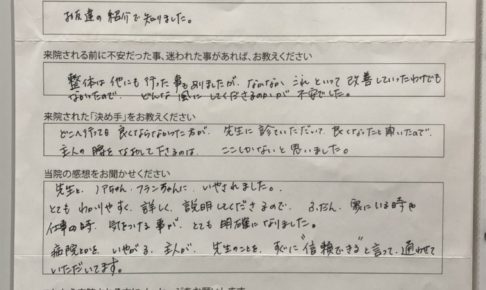 お友達の紹介で知りました。
来院される前に不安だった事、迷われた事があれば、お教えください
整体は他にも行った事もありましたが、なかなか これといって 改善していったわけでも
なかったので、どんな風にしてくださるのかが不安でした。
来院された「決め手」をお教えください
どこへ行っても良くならなかった方が、先生に診ていただいて、良くなったと聞いたので、
主人の腰をなおして下さるのは、ここしかないと思いました。
当院の感想をお聞かせください
先生と、ノアちゃん、フランちゃんに、いやされました。
とても わかりやすく、詳しく、説明してくださるので、ふだん、家にいる時や
仕事の時、気をつける事が、とても明確になりました。
病院とかを いやがる、主人が、先生のことを、すぐに"信頼できる"と言って、通わせて
いただいてます。